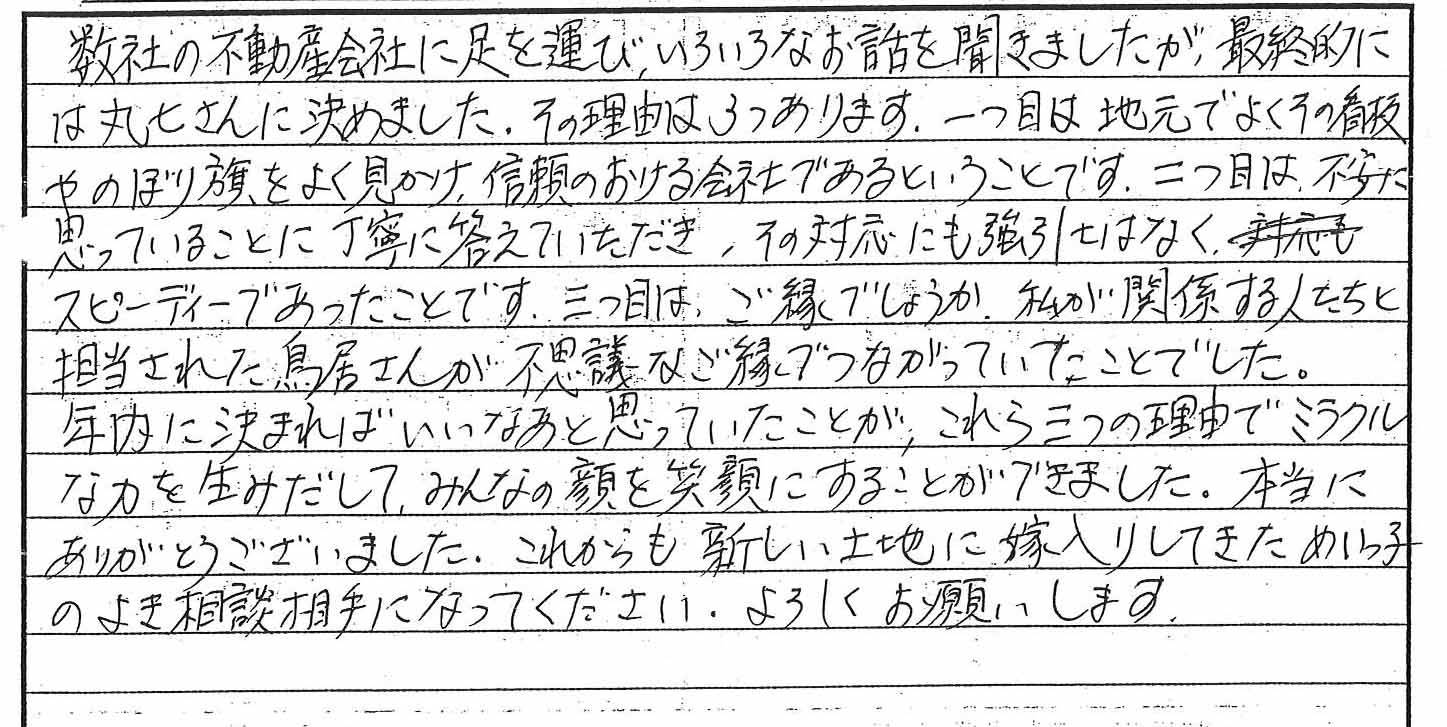 数社の不動産会社に足を運び、いろいろなお話を聞きましたが、最終的に
は丸七さんに決めました。その理由は3つあります。一つ目は地元でよくその看板
やのぼり旗をよく見かけ、信頼のおける会社であるということです。二つ目は、不安に
思っていることに丁寧に答えていただき、その対応にも強引さはなく、対応も
スピーディーであったことです。三つ目は、ご縁でしょうか。私が関係する人たちと
担当された鳥居さんが不思議なご縁でつながっていたことでした。
年内に決まればいいなあと思っていたことが、これら三つの理由でミラクル
な力を生みだして、みんなの顔を笑顔にすることができました。本当に
ありがとうございました。これからも新しい土地に嫁入りしてきためいっ子
のよき相談相手になってください。よろしくお願いします。